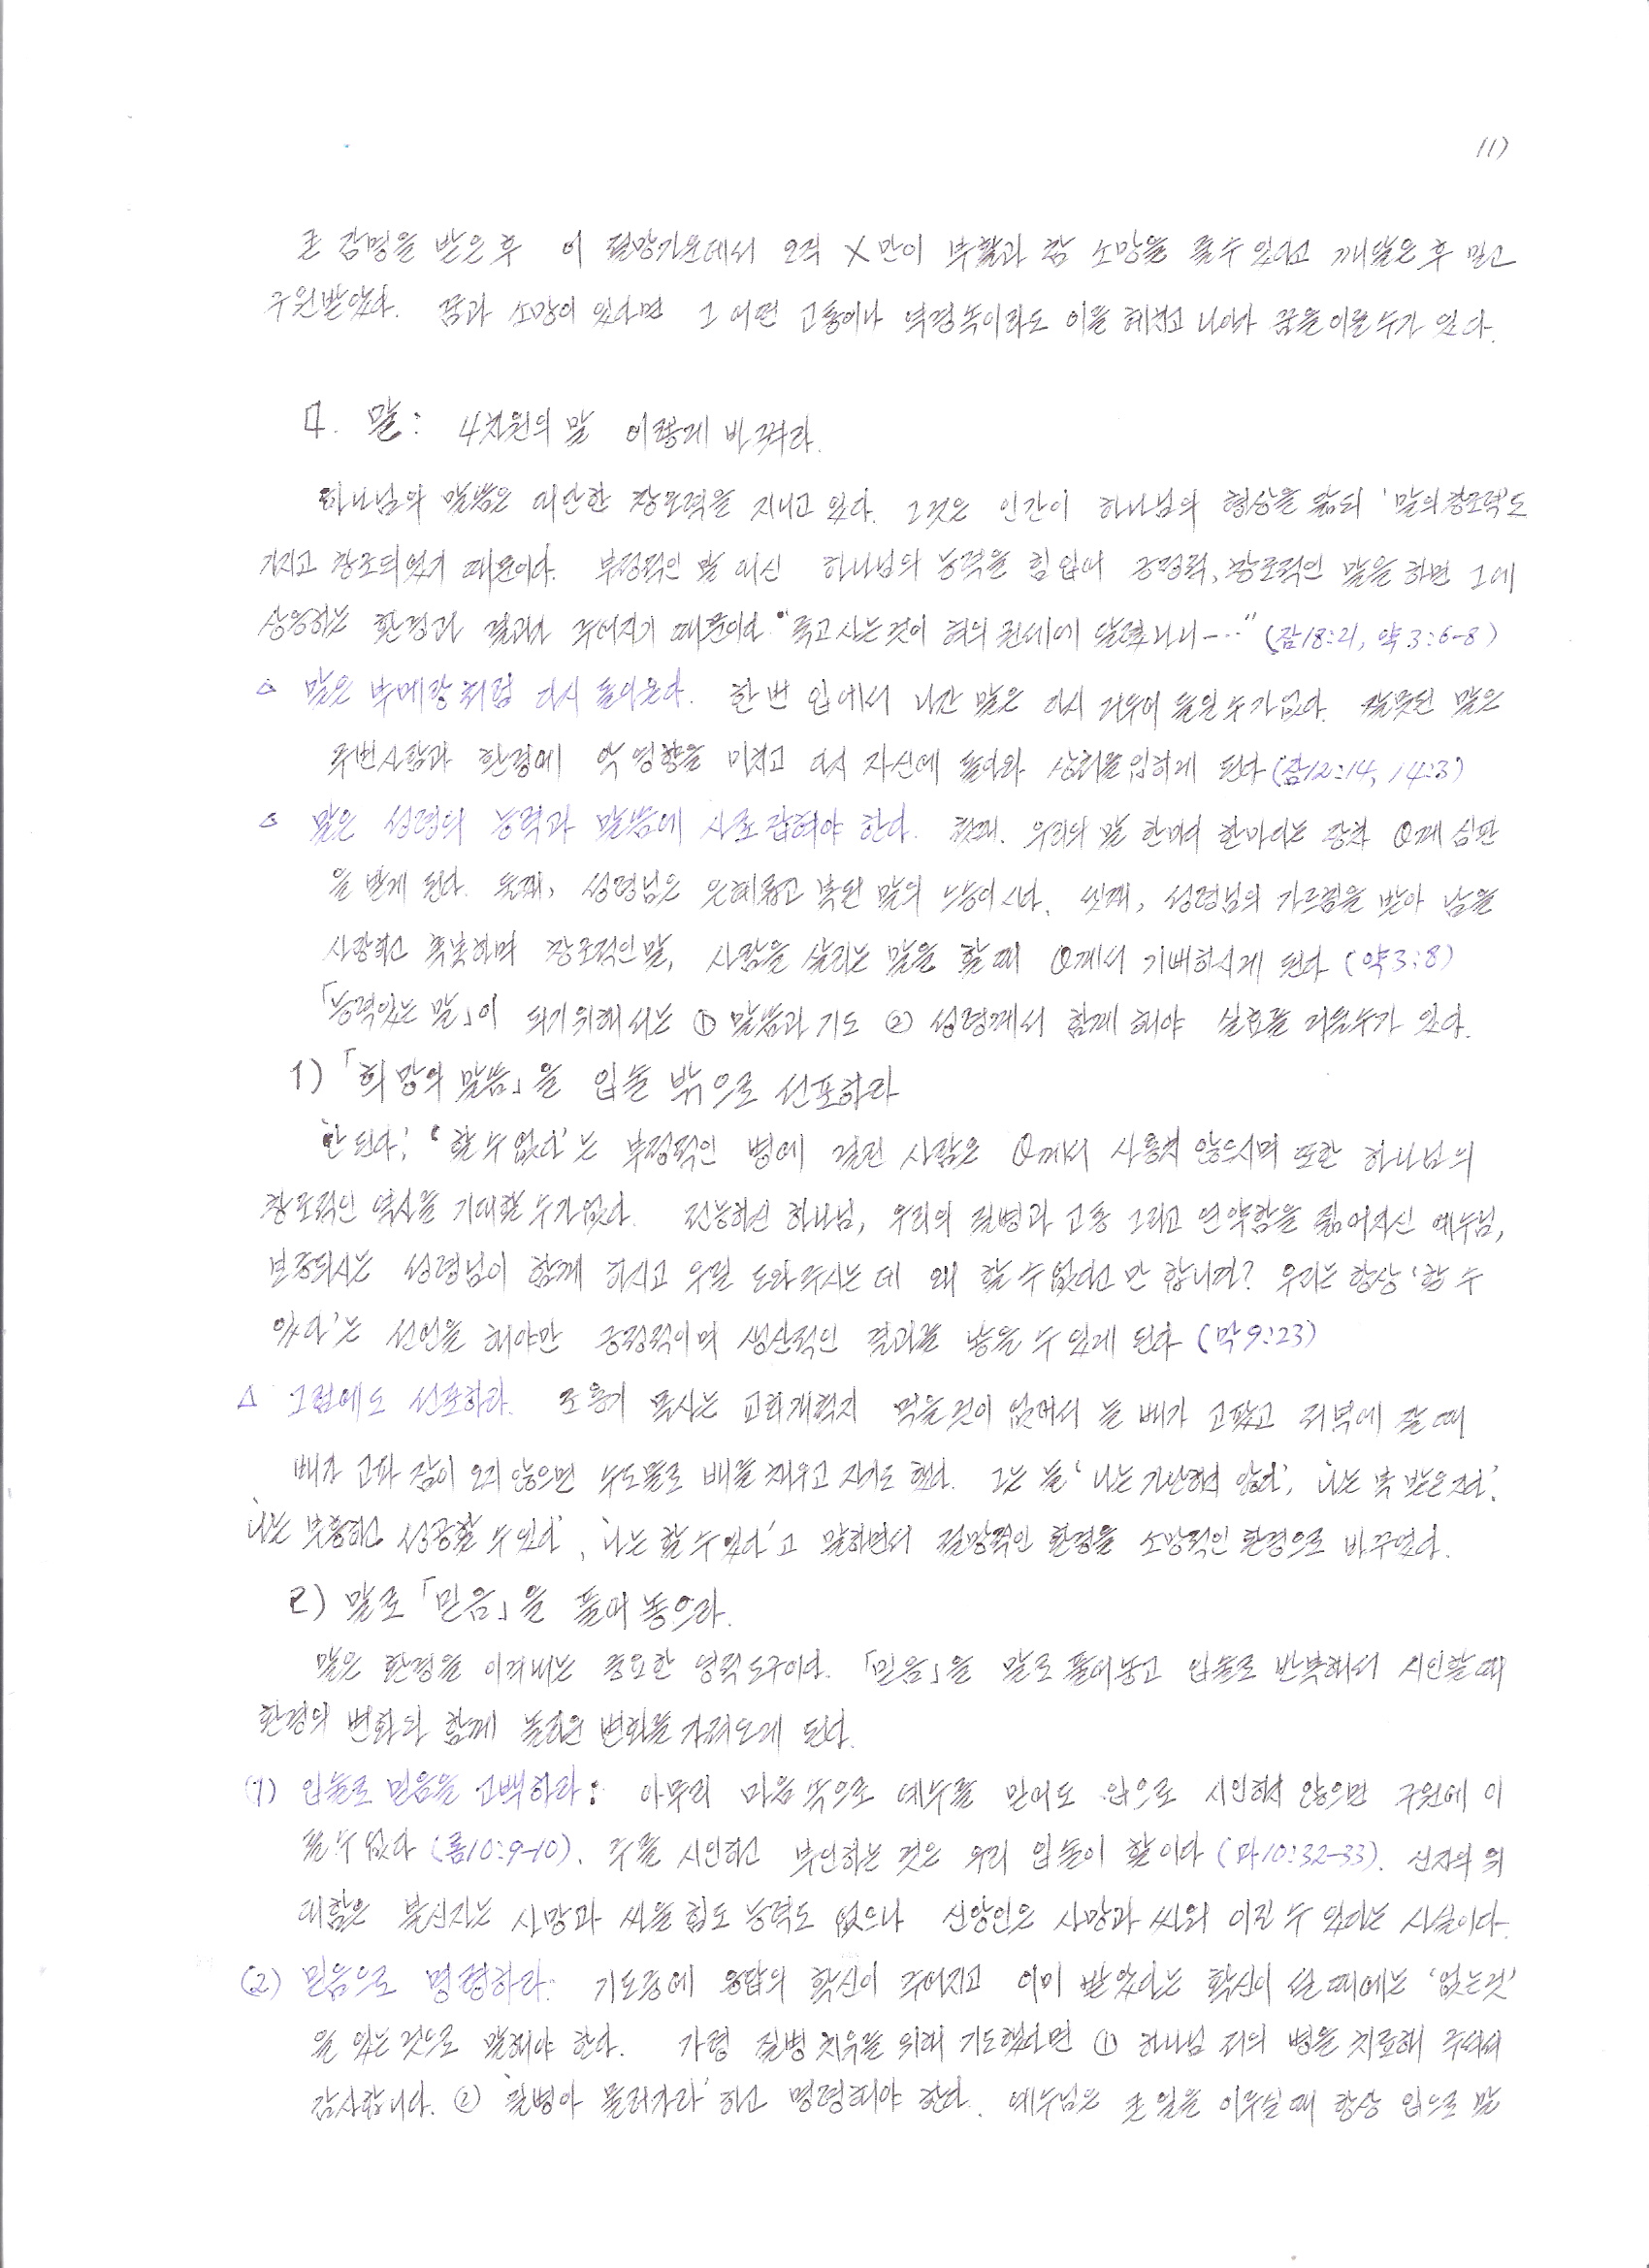 11)
큰 감명을 받은 후 이 절망가운데서 오직 X만이 부활과 참 소망을 줄 수 있다고 깨달은 후 믿고
구원받았다. 꿈과 소망이 있다면 그 어떤 고통이나 역경 속이라도 이을 헤치고 나아가 꿈을 이룰 수가 있다.
4. 말: 4차원의 말 이렇게 바꿔라.
하나님의 말씀은 대단한 창조력을 지니고 있다. 그것은 인간이 하나님의 형상을 닮되 '말의 창조력'도
가지고 창조되었기 때문이다. 부정적인 말 대신 하나님의 능력을 힘입어 긍정적, 창조적인 말을 하면 그에
상응하는 환경과 결과가 주어지기 때문이다. "죽고 사는 것이 혀의 권세에 달렸나니-…" (잠18:21, 약3:6-8)
△ 말은 부메랑처럼 다시 돌아온다. 한번 입에서 나간 말은 다시 거두어 들일 수가 없다. 잘못된 말은
주변사람과 환경에 악영향을 미치고 다시 자신에 돌아와 상처를 입히게 된다 (잠12:14, 14:3)
△ 말은 성령의 능력과 말씀에 사로잡혀야 한다. 첫째. 우리의 말 한마디 한마디는 장차 O께 심판
을 받게 된다. 둘째, 성령님은 은혜롭고 복된 말의 능이시다. 셋째, 성령님의 가르침을 받아 남을
사랑하고 축복하며 창조적인 말, 사람을 살리는 말을 할 때 O께서 기뻐하시게 된다 (약3:8)
「능력있는 말」이 되기 위해서는 ① 말씀과 기도 ② 성령께서 함께 해야 실효를 거둘 수가 있다.
1) 「희망의 말씀」을 입술 밖으로 선포하라
'안 된다', '할 수 없다'는 부정적인 병에 걸린 사람은 O께서 사용치 않으시며 또한 하나님의
창조적인 역사를 기대할 수가 없다. 전능하신 하나님, 우리의 질병과 고통 그리고 연약함을 짊어지신 예수님,
보호되시는 성령님이 함께 하시고 우릴 도와주시는데 왜 할 수 없다고만 합니까? 우리는 항상 '할 수
있다'는 선언을 해야만 긍정적이며 생산적인 결과를 낳을 수 있게 된다 (막9:23)
△ 그럼에도 선포하라. 조용기 목사는 교회개척지 먹을 것이 없어서 늘 배가 고팠고 저녁에 잘 때
배가 고파 잠이 오지 않으면 수도물로 배를 채우고 자기도 했다. 그는 늘 '나는 가난하지 않다', '나는 복 받은 자다',
'나는 부흥하고 성공할 수 있다', '나는 할 수 있다'고 말하면서 절망적인 환경을 소망적인 환경으로 바꾸었다.
2) 말로 「믿음」을 풀어 놓으라.
말은 환경을 이겨내는 중요한 영적 도구이다. 「믿음」을 말로 풀어놓고 입술로 반복해서 시인할 때
환경의 변화와 함께 놀라운 변화를 가져오게 된다.
(1) 입술로 믿음을 고백하라: 아무리 마음 속으로 예수를 믿어도 입으로 시인하지 않으면 구원에 이
를 수 없다 (롬10:9-10). 주를 시인하고 부인하는 것은 우리 입술이 할이다 (마10:32-33). 신자의 위
대함은 불신자는 사망과 싸울 힘도 능력도 없으나 신앙인은 사망과 싸워 이길 수 있다는 사실이다.
(2) 믿음으로 명령하라: 기도중에 응답의 확신이 주어지고 이미 받았다는 확신이 설 때에는 '없는 것'
을 있는 것으로 말해야 한다. 가령 질병 치유를 위해 기도했다면 ① 하나님 저의 병을 치료해 주셔서
감사합니다. ② '질병아 물러가라' 하고 명령해야 한다. 예수님은 큰 일을 이루실 때 항상 입으로 말